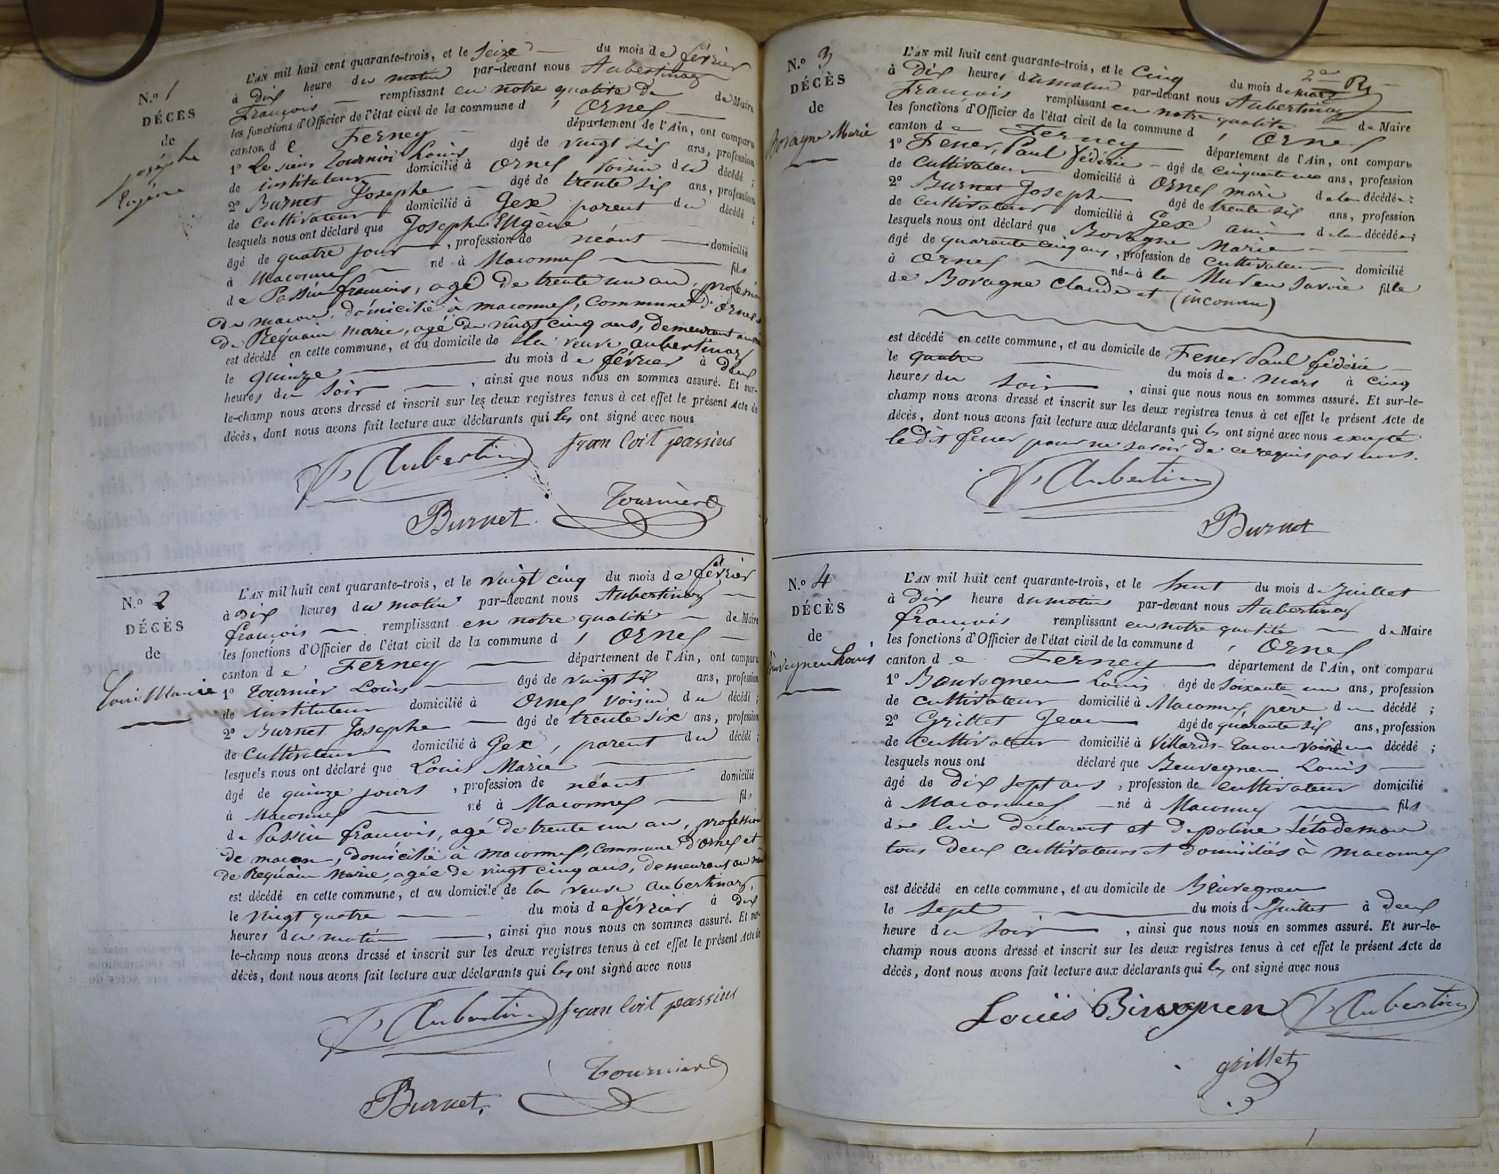 N.o 1
DÉCÈS
de
Josephe
Eugène
L'AN mil huit cent quarante-trois, et le seize du mois de février
à dix heure du matin par-devant nous Aubertinaz
François remplissant en notre qualité de de Maire
les fonctions d'Officier de l'état civil de la commune d'Ornex
canton de Ferney département de l'Ain, ont comparu
1o Le sieur Tournier Louis âgé de vingt six ans, profession
de instituteur domicilié à Ornex voisin du décédé ;
2o Burnet Josephe âgé de trente six ans, profession
de Cultivateur domicilié à Gex parent du décédé ;
lesquels nous ont déclaré que Josephe Eugène
âgé de quatre jour , profession de néant domicilié
à Maconnex né à Maconnex fils
de Passin françois, agé de trente un an, profession
de macon, domicilié à maconnex, Commune d'Ornex
de Requain marie, agé de vingt cinq ans, demeurant au
est décédé en cette commune, et au domicile de la veuve aubertinaz
le quinze du mois de février à deux
heures du soir , ainsi que nous nous en sommes assuré. Et sur-
le-champ nous avons dressé et inscrit sur les deux registres tenus à cet effet le présent Acte de
décès, dont nous avons fait lecture aux déclarants qui les ont signé avec nous
F. Aubertin fran Coit passins
Burnet Tournier
N.o 2
DÉCÈS
de
Louis Marie
L'AN mil huit cent quarante-trois, et le vingt cinq du mois de février
à dix heures du matin par-devant nous Aubertinaz
françois remplissant en notre qualité de Maire
les fonctions d'Officier de l'état civil de la commune d'Ornex
canton de Ferney département de l'Ain, ont comparu
1o Tournier Louis âgé de vingt six ans, profession
de instituteur domicilié à Ornex voisin du décédé ;
2o Burnet Josephe âgé de trente six ans, profession
de Cultivateur domicilié à Gex, parent du décédé ;
lesquels nous ont déclaré que Louis Marie
âgé de quinze jours , profession de néant domicilié
à Maconnex né à Maconnex fils
de Passin francois, age de trente un an, profession
de macon, domicilié à maconnex, Commune d'Ornex et
de Requain Marie, agée de vingt cinq ans, demeurant au
est décédé en cette commune, et au domicile de la veuve aubertinaz,
le vingt quatre du mois de février à dix
heures du matin , ainsi que nous nous en sommes assuré. Et sur-
le-champ nous avons dressé et inscrit sur les deux registres tenus à cet effet le présent Acte de
décès, dont nous avons fait lecture aux déclarants qui les ont signé avec nous
F. Aubertin fran Coit passins
Burnet, Tournier
N.o 3
DÉCÈS
de
Bovagne Marie
2e R
L'AN mil huit cent quarante-trois, et le Cinq du mois de mars
à dix heures du matin par-devant nous Aubertinaz
François remplissant en notre qualité de Maire
les fonctions d'Officier de l'état civil de la commune d'Ornex
canton de Ferney département de l'Ain, ont comparu
1o Fener, Paul fédérie âgé de Cinquante un ans, profession
de Cultivateur domicilié à Ornex mari de la décédée ;
2o Burnet Joseph âgé de trente six ans, profession
de Cultivateur domicilié à Gex ami de la décédée ;
lesquels nous ont déclaré que Bovagne Marie
âgé de quarante cinq ans , profession de Cultivateur domicilié
à Ornex née à la Mur en Savoie fille
de Bovagne Claude et (inconnu)
est décédé en cette commune, et au domicile de Fener Paul fédérie
le quatre du mois de mars à cinq
heures du soir , ainsi que nous nous en sommes assuré. Et sur-le-
champ nous avons dressé et inscrit sur les deux registres tenus à cet effet le présent Acte de
décès, dont nous avons fait lecture aux déclarants qui les ont signé avec nous excepté
ledit fener pour ne savoir de ce requis par nous.
F. Aubertin
Burnet
N.o 4
DÉCÈS
de
Beuvegneu Louis
L'AN mil huit cent quarante-trois, et le huit du mois de Juillet
à dix heure du matin par-devant nous Aubertinaz
françois remplissant en notre qualité de Maire
les fonctions d'Officier de l'état civil de la commune d'Ornex
canton de Ferney département de l'Ain, ont comparu
1o Bauvogneu Louis âgé de soixante un ans, profession
de cultivateur domicilié à Maconnex, père du décédé ;
2o Grillet Jean âgé de quarante six ans, profession
de Cultivateur domicilié à Villards-Tacon voisin du décédé ;
lesquels nous ont déclaré que Beuvegneu Louis
âgé de dix sept ans , profession de cultivateur domicilié
à Maconnex né à Maconnex fils
du lui déclarent et de poline
tous deux cultivateurs et domiciliés à maconnex
est décédé en cette commune, et au domicile de Beuvegneu
le sept du mois de Juillet à deux
heure du soir , ainsi que nous nous en sommes assuré. Et sur-le-
champ nous avons dressé et inscrit sur les deux registres tenus à cet effet le présent Acte de
décès, dont nous avons fait lecture aux déclarants qui les ont signé avec nous
Louis Bivognen F. Aubertin
grillet